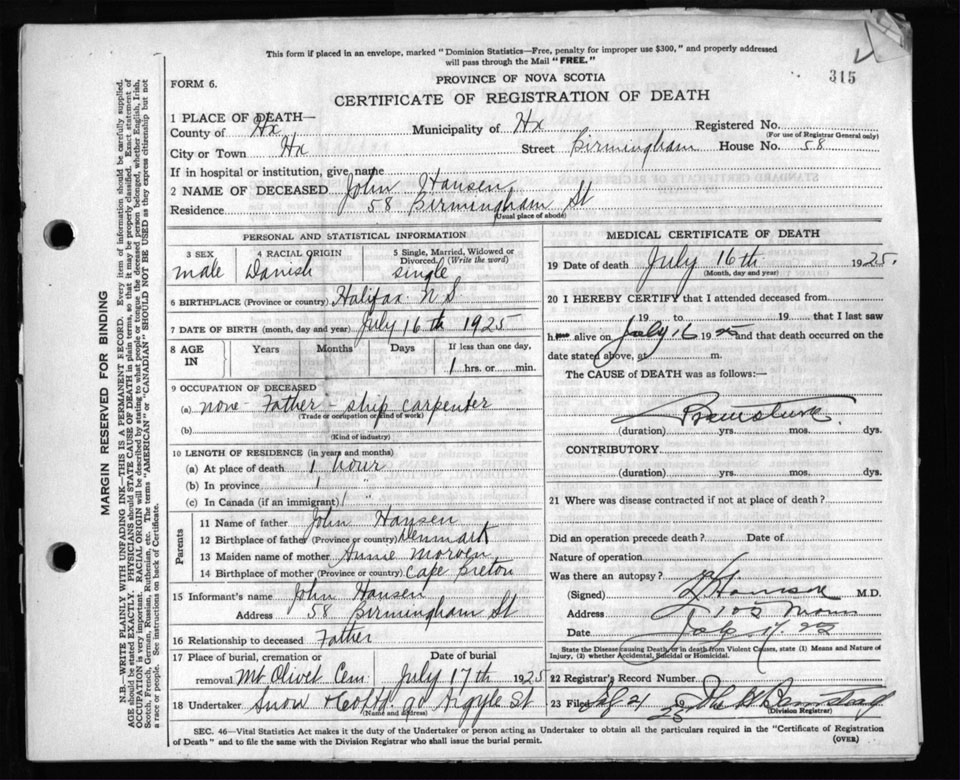 This form if placed in an envelope, marked "Dominion Statistics—Free, penalty for improper use $300," and properly addressed
will pass through the Mail "FREE."
315
FORM 6.
PROVINCE OF NOVA SCOTIA
CERTIFICATE OF REGISTRATION OF DEATH
1 PLACE OF DEATH—
County of Hx Municipality of Hx Registered No.
(For use of Registrar General only)
City or Town Hx Street Birmingham House No. 58
If in hospital or institution, give name
2 NAME OF DECEASED John Hansen
Residence 58 Birmingham St
(Usual place of abode)
PERSONAL AND STATISTICAL INFORMATION
3 SEX male
4 RACIAL ORIGIN Danish
5 Single, Married, Widowed or Divorced. (Write the word) single
6 BIRTHPLACE (Province or country) Halifax N S
7 DATE OF BIRTH (month, day and year) July 16th 1925
8 AGE IN Years Months Days If less than one day, 1 hrs. or min.
9 OCCUPATION OF DECEASED
(a) none - Father - ship carpenter
(Trade or occupation or kind of work)
(b)
(Kind of industry)
10 LENGTH OF RESIDENCE (in years and months)
(a) At place of death 1 hour
(b) In province 1 "
(c) In Canada (if an immigrant) 1 "
Parents
11 Name of father John Hansen
12 Birthplace of father (Province or country) Denmark
13 Maiden name of mother Annie
14 Birthplace of mother (Province or country) Cape Breton
15 Informant's name John Hansen
Address 58 Birmingham St
16 Relationship to deceased Father
17 Place of burial, cremation or removal Mt Olivet Cem Date of burial July 17th 1925
18 Undertaker Snow & Co Ltd. 90 Argyle St
(Name and address)
MEDICAL CERTIFICATE OF DEATH
19 Date of death July 16th 1925.
(Month, day and year)
20 I HEREBY CERTIFY that I attended deceased from
19 to 19 that I last saw
h alive on July 16 1925 and that death occurred on the
date stated above, at m.
The CAUSE of DEATH was as follows:—
Premature
(duration) yrs. mos. dys.
CONTRIBUTORY
(duration) yrs. mos. dys.
21 Where was disease contracted if not at place of death?
Did an operation precede death? Date of
Nature of operation
Was there an autopsy?
(Signed) M.D.
Address
Date July 17. 25
State the Disease causing Death, or in death from Violent Causes, state (1) Means and Nature of
Injury, (2) whether Accidental, Suicidal or Homicidal.
22 Registrar's Record Number
23 Filed
(Division Registrar)
SEC. 46—Vital Statistics Act makes it the duty of the Undertaker or person acting as Undertaker to obtain all the particulars required in the "Certificate of Registration
of Death" and to file the same with the Division Registrar who shall issue the burial permit.
(OVER)
MARGIN RESERVED FOR BINDING
N.B.—WRITE PLAINLY WITH UNFADING INK—THIS IS A PERMANENT RECORD. Every item of information should be carefully supplied.
AGE should be stated EXACTLY. PHYSICIANS should STATE CAUSE OF DEATH in plain terms, so that it may be properly classified. Exact statement of
OCCUPATION is very important. RACIAL ORIGIN will be described by stating to what people or tongue the deceased person belonged, whether English, Irish,
Scotch, French, German, Russian, Ruthenian, etc. The terms "AMERICAN" or "CANADIAN" SHOULD NOT BE USED as they express citizenship but not
a race or people. See instructions on back of Certificate.